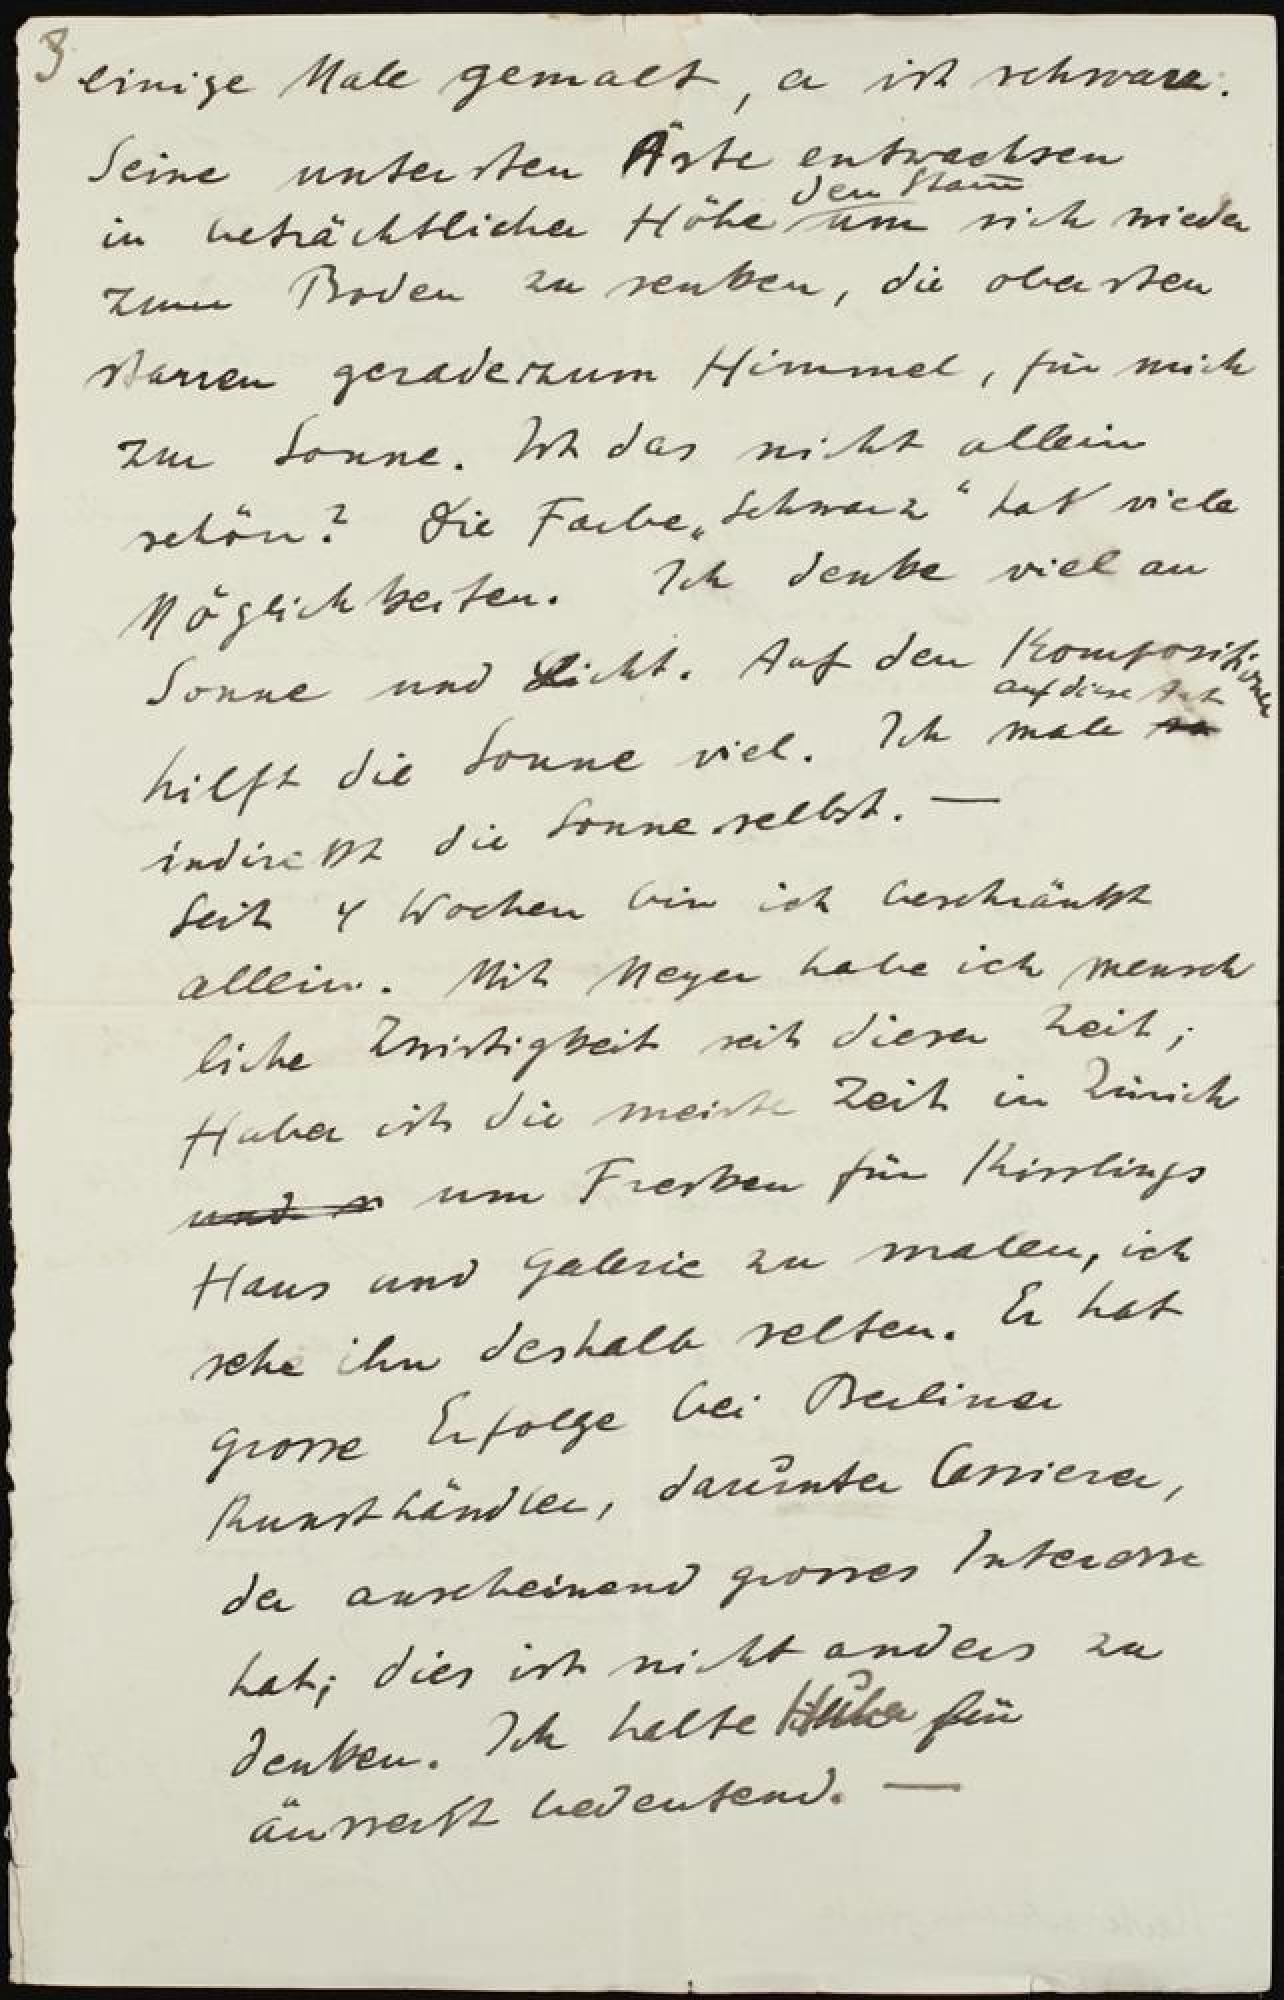 3
einige Male gemalt, er ist schwarz.
Seine untersten Äste entwachsen
dem Stamm
in beträchtlicher Höhe um sich wieder
zum Boden zu senken, die obersten
starren geradezum Himmel, für mich
zur Sonne. Ist das nicht allein
schön? Die Farbe „Schwarz“ hat viele
Möglichkeiten. Ich denke viel an
Sonne und Licht. Auf den Kompositionen
auf diese Art
hilft die Sonne viel. Ich male so
indirekt die Sonne selbst. —
Seit 4 Wochen bin ich beschränkt
allein. Mit Meyer habe ich mensch
liche Zwistigkeit seit dieser Zeit;
Huber ist die meiste Zeit in Zürich
und s um Fresken für Kisslings
Haus und Galerie zu malen, ich
sehe ihn deshalb selten. Er hat
grosse Erfolge bei Berliner
Kunsthändler, darunter Cassierer,
der anscheinend grosses Interesse
hat; dies ist nicht anders zu
denken. Ich halte Huber für
äusserst bedeutend. —